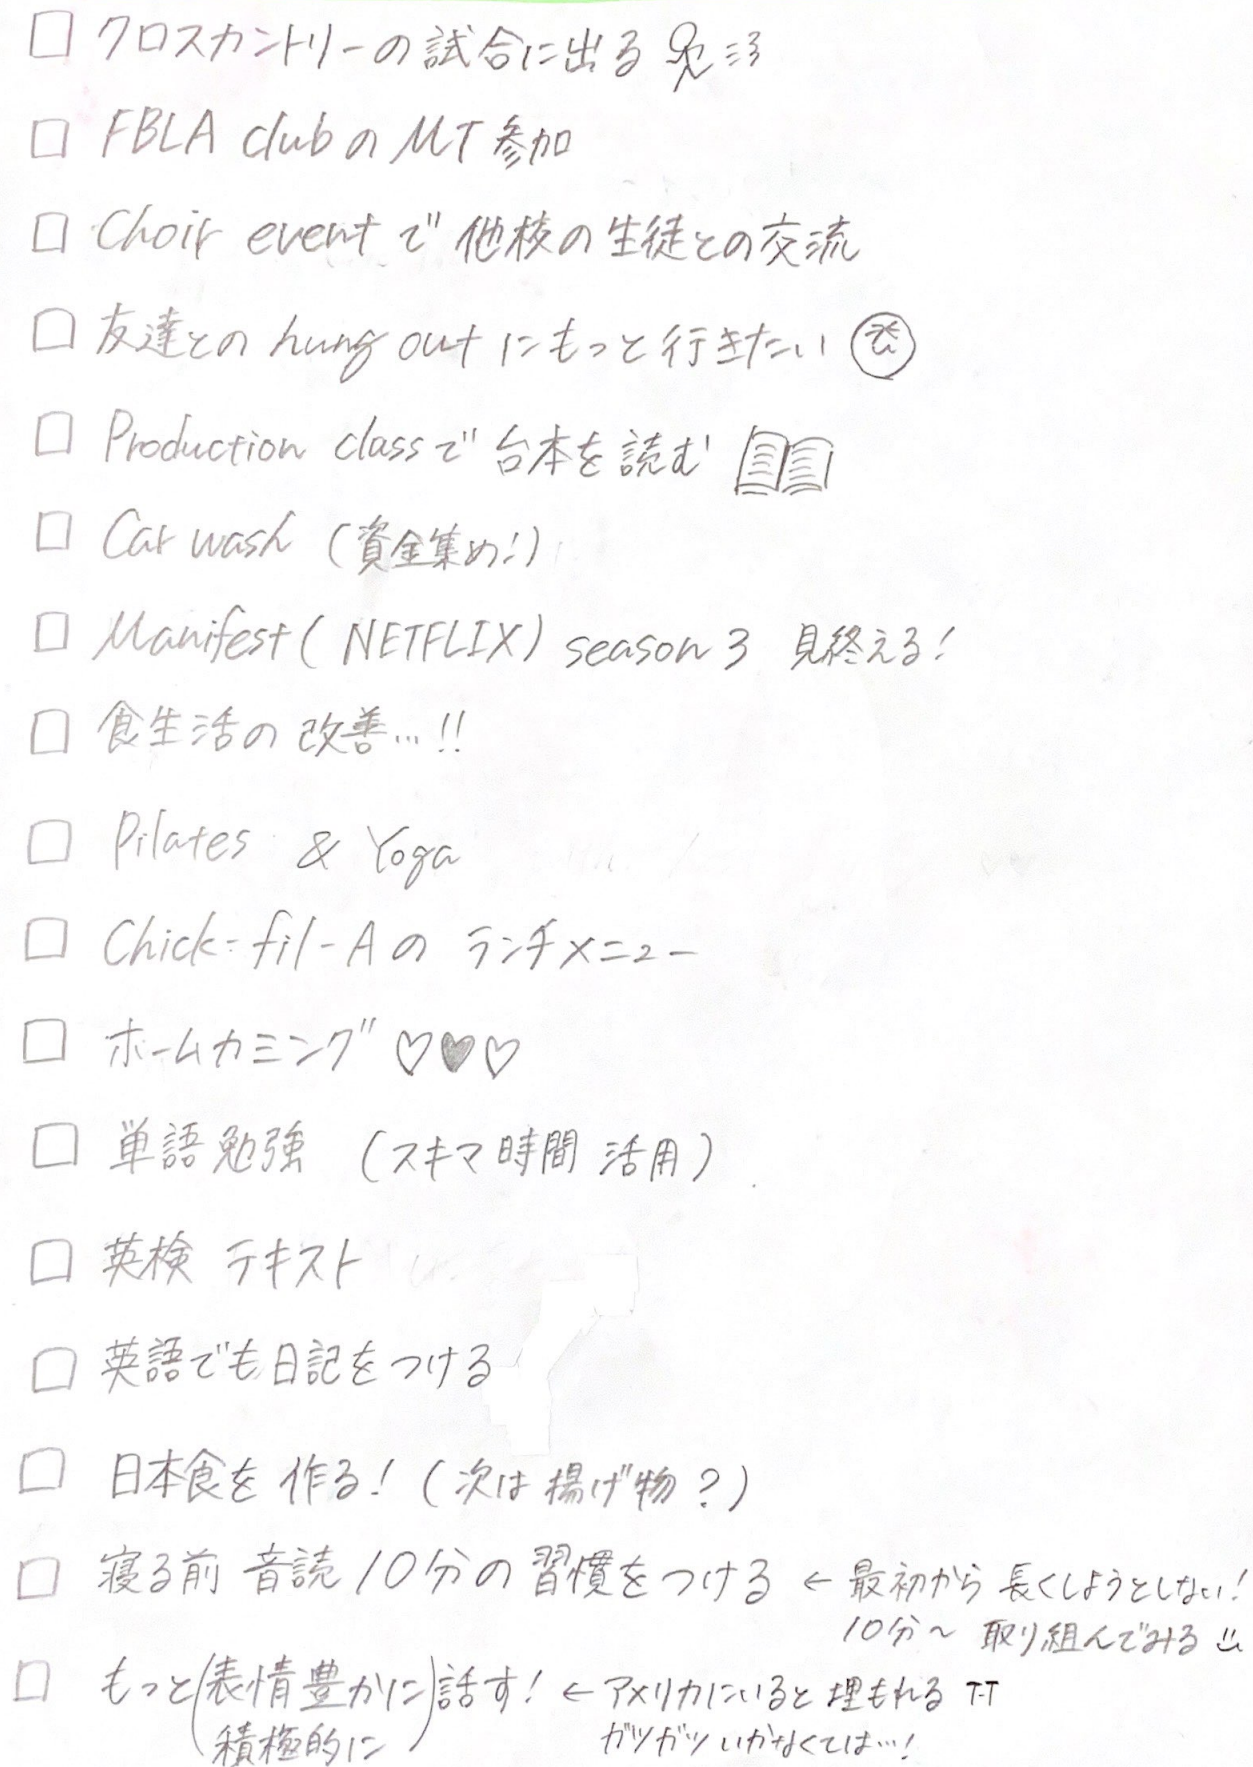 □ クロスカントリーの試合に出る
□ FBLA clubのMT参加
□ Choir eventで他校の生徒との交流
□ 友達とのhung outにもっと行きたい
□ Production classで台本を読む
□ Car wash (資金集め!)
□ Manifest(NETFLIX) season 3 見終える!
□ 食生活の改善...!!
□ Pilates & Yoga
□ Chick-fil-Aのランチメニュー
□ ホームカミング♡♥♡
□ 単語勉強 (スキマ時間 活用)
□ 英検 テキスト
□ 英語でも日記をつける
□ 日本食を作る! (次は揚げ物?)
□ 寝る前 音読10分の習慣をつける ← 最初から長くしようとしない!
10分〜 取り組んでみる
□ もっと(表情豊かに)話す! ← アメリカにいると埋もれる T-T
積極的に ガツガツいかなくては...!